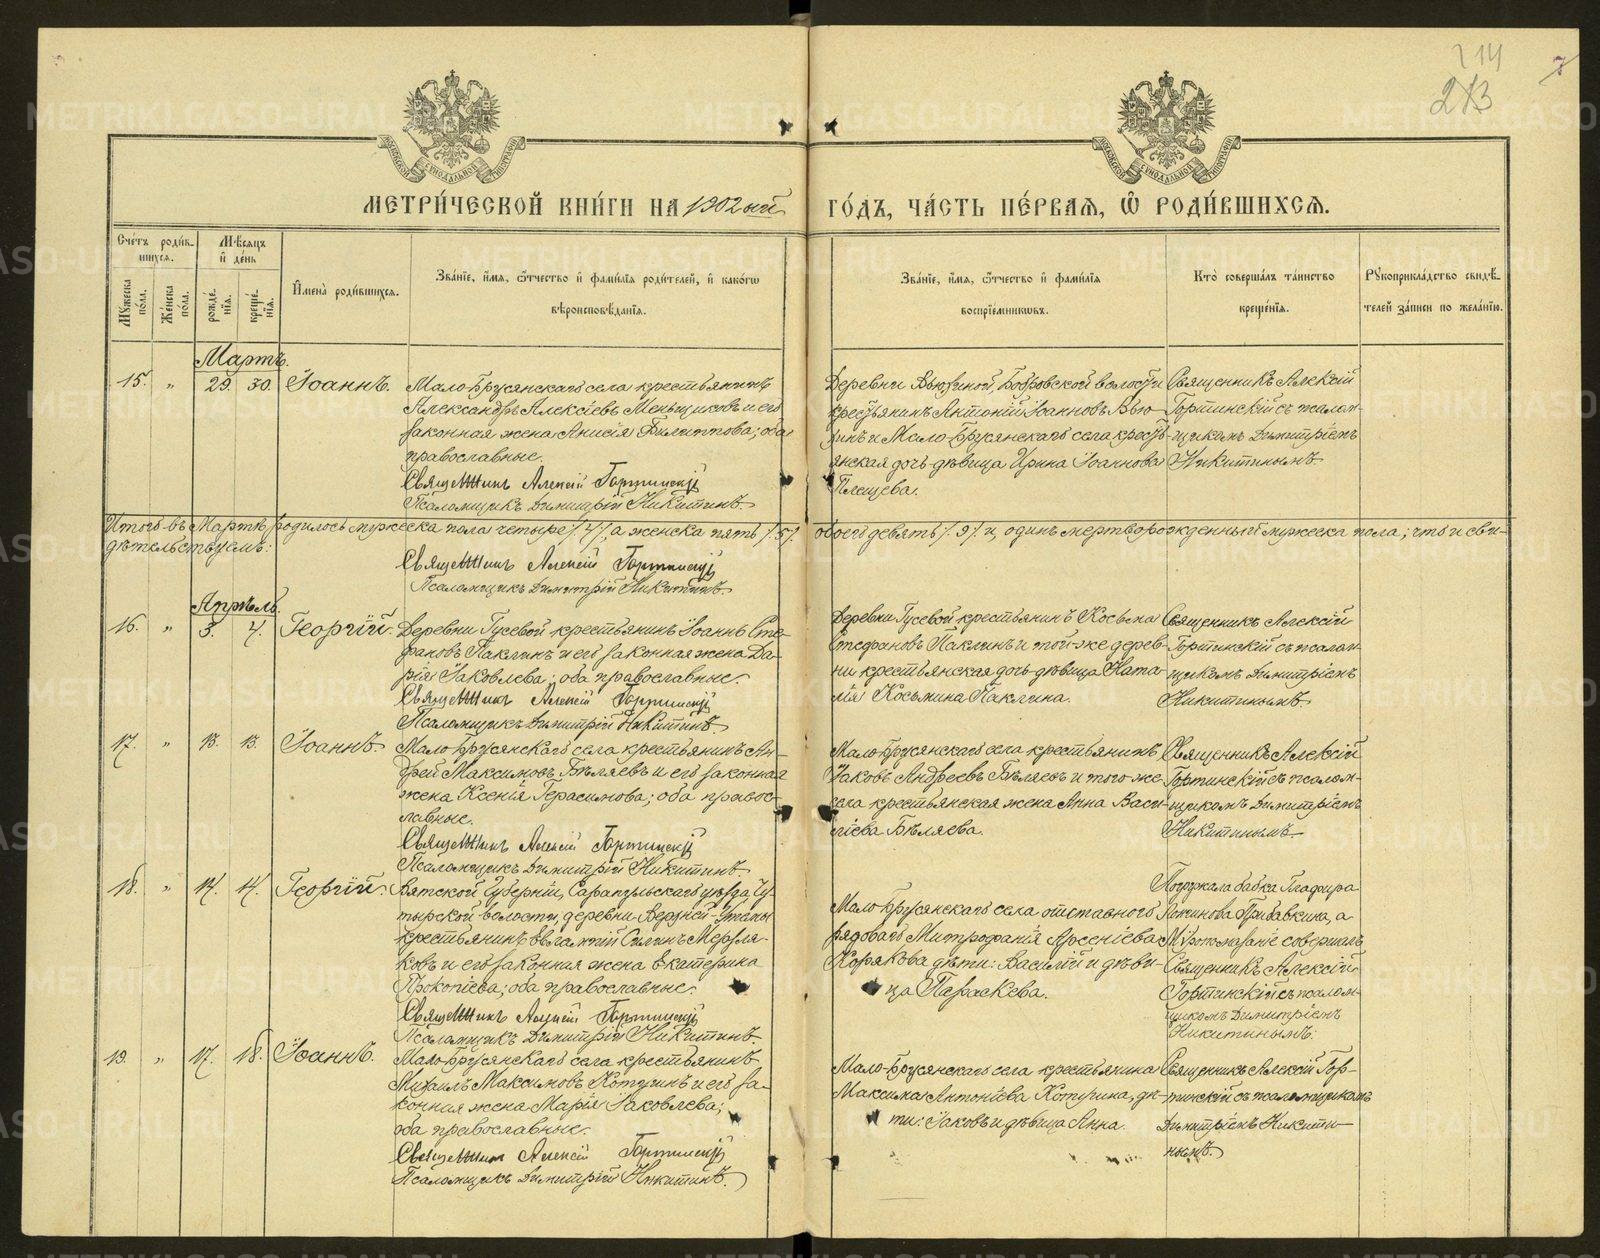 7
214
213
МОСКОВСКОЙ СѴНОДАЛЬНОЙ ТИПОГРАФІИ
МОСКОВСКОЙ СѴНОДАЛЬНОЙ ТИПОГРАФІИ
МЕТРИ́ЧЕСКОЙ КНИ́ГИ НА 1902ый ГО́ДЪ, ЧА́СТЬ ПЕ́РВАѦ, Ѿ РОДИ́ВШИХСѦ.
Счётъ роди́вшихсѧ.
Мѣ́сѧцъ и де́нь
Мꙋ́жеска по́ла.
Же́нска по́ла.
рожде́нїѧ.
креще́нїѧ.
Имена̀ роди́вшихсѧ.
Зва́нїе, и́мѧ, ѻ҆́тчество и фами́лїѧ роди́телей, и како́гѡ
вѣроисповѣ́данїѧ.
Зва́нїе, и́мѧ, ѻ҆́тчество и фами́лїѧ
воспрїе́мникѡвъ.
Кто̀ соверша́лъ та́инство
креще́нїѧ.
Рꙋкоприкла́дство свидѣ́телей за́писи по жела́нїю.
Мартъ.
15. „ 29. 30. Іоаннъ.
Мало-Брусянскаго села крестьянинъ
Александръ Алексіевъ Меньщиковъ и его
законная жена Анисія Филиппова; оба
православные.
Священникъ Алексій Гортинскій
Псаломщикъ Димитрій Никитинъ.
Деревни Вьюхиной, Бобровской волости
крестьянинъ Антоній Іоанновъ Вью-
хинъ и Мало-Брусянскаго села кресть-
янская дочь-дѣвица Ирина Іоаннова
Плещева.
Священникъ Алексій
Гортинскій съ псалом-
щикомъ Димитріемъ
Никитинымъ.
Итого въ Мартѣ родилось мужеска пола четыре /4/, а женска пять /5/. обоего девять /9/ и один мертворожденный мужеска пола; что и сви-
дѣтельствуемъ:
Священникъ Алексій Гортинскій
Псаломщикъ Димитрій Никитинъ.
Апрѣль.
16. „ 3. 4. Георгій.
Деревни Гусевой крестьянинъ Іоаннъ Сте-
фановъ Паклинъ и его законная жена Да-
рія Іаковлева; оба православные.
Священникъ Алексій Гортинскій
Псаломщикъ Димитрій Никитинъ.
Деревни Гусевой крестьянинъ Косьма
Стефановъ Паклинъ и той-же дерев-
ни крестьянская дочь-дѣвица Ната-
лія Косьмина Паклина.
Священникъ Алексій
Гортинскій съ псалом-
щикомъ Димитріемъ
Никитинымъ.
17. „ 13. 13. Іоаннъ.
Мало-Брусянскаго села крестьянинъ Ан-
дрей Максимовъ Бѣляевъ и его законная
жена Ксенія Герасимова; оба правос-
лавные.
Священникъ Алексій Гортинскій
Псаломщикъ Димитрій Никитинъ.
Мало-Брусянскаго села крестьянинъ
Іаковъ Андреевъ Бѣляевъ и того же
села крестьянская жена Анна Васи-
ліева Бѣляева.
Священникъ Алексій
Гортинскій съ псалом-
щикомъ Димитріемъ
Никитинымъ.
18. „ 14. 14. Георгій.
Вятской Губерніи, Сарапульскаго уѣзда Чу-
тырской волости, деревни Верхней-Утемы
крестьянинъ Евлампій Силинъ Мерзля-
ковъ и его законная жена Екатерина
Прокопіева; оба православные.
Священникъ Алексій Гортинскій
Псаломщикъ Димитрій Никитинъ.
Мало-Брусянскаго села отставнаго
рядоваго Митрофанія Арсеніева
Корякова дѣти: Василій и дѣви-
ца Параскева.
Погружала бабка Глафира
Прибавкина, а
Мѵропомазаніе совершалъ
Священникъ Алексій
Гортинскій съ псалом-
щикомъ Димитріемъ
Никитинымъ.
19. „ 17. 18. Іоаннъ.
Мало-Брусянскаго села крестьянинъ
Михаилъ Максимовъ Котугинъ и его за-
конная жена Марія Іаковлева;
оба православные.
Священникъ Алексій Гортинскій
Псаломщикъ Димитрій Никитинъ.
Мало-Брусянскаго села крестьянина
Максима Антоніева Котугина, дѣ-
ти: Іаковъ и дѣвица Анна.
Священникъ Алексій Гор-
тинскій съ псаломщикомъ
Димитріемъ Никити-
нымъ.
METRIKI.GASO-URAL.RU